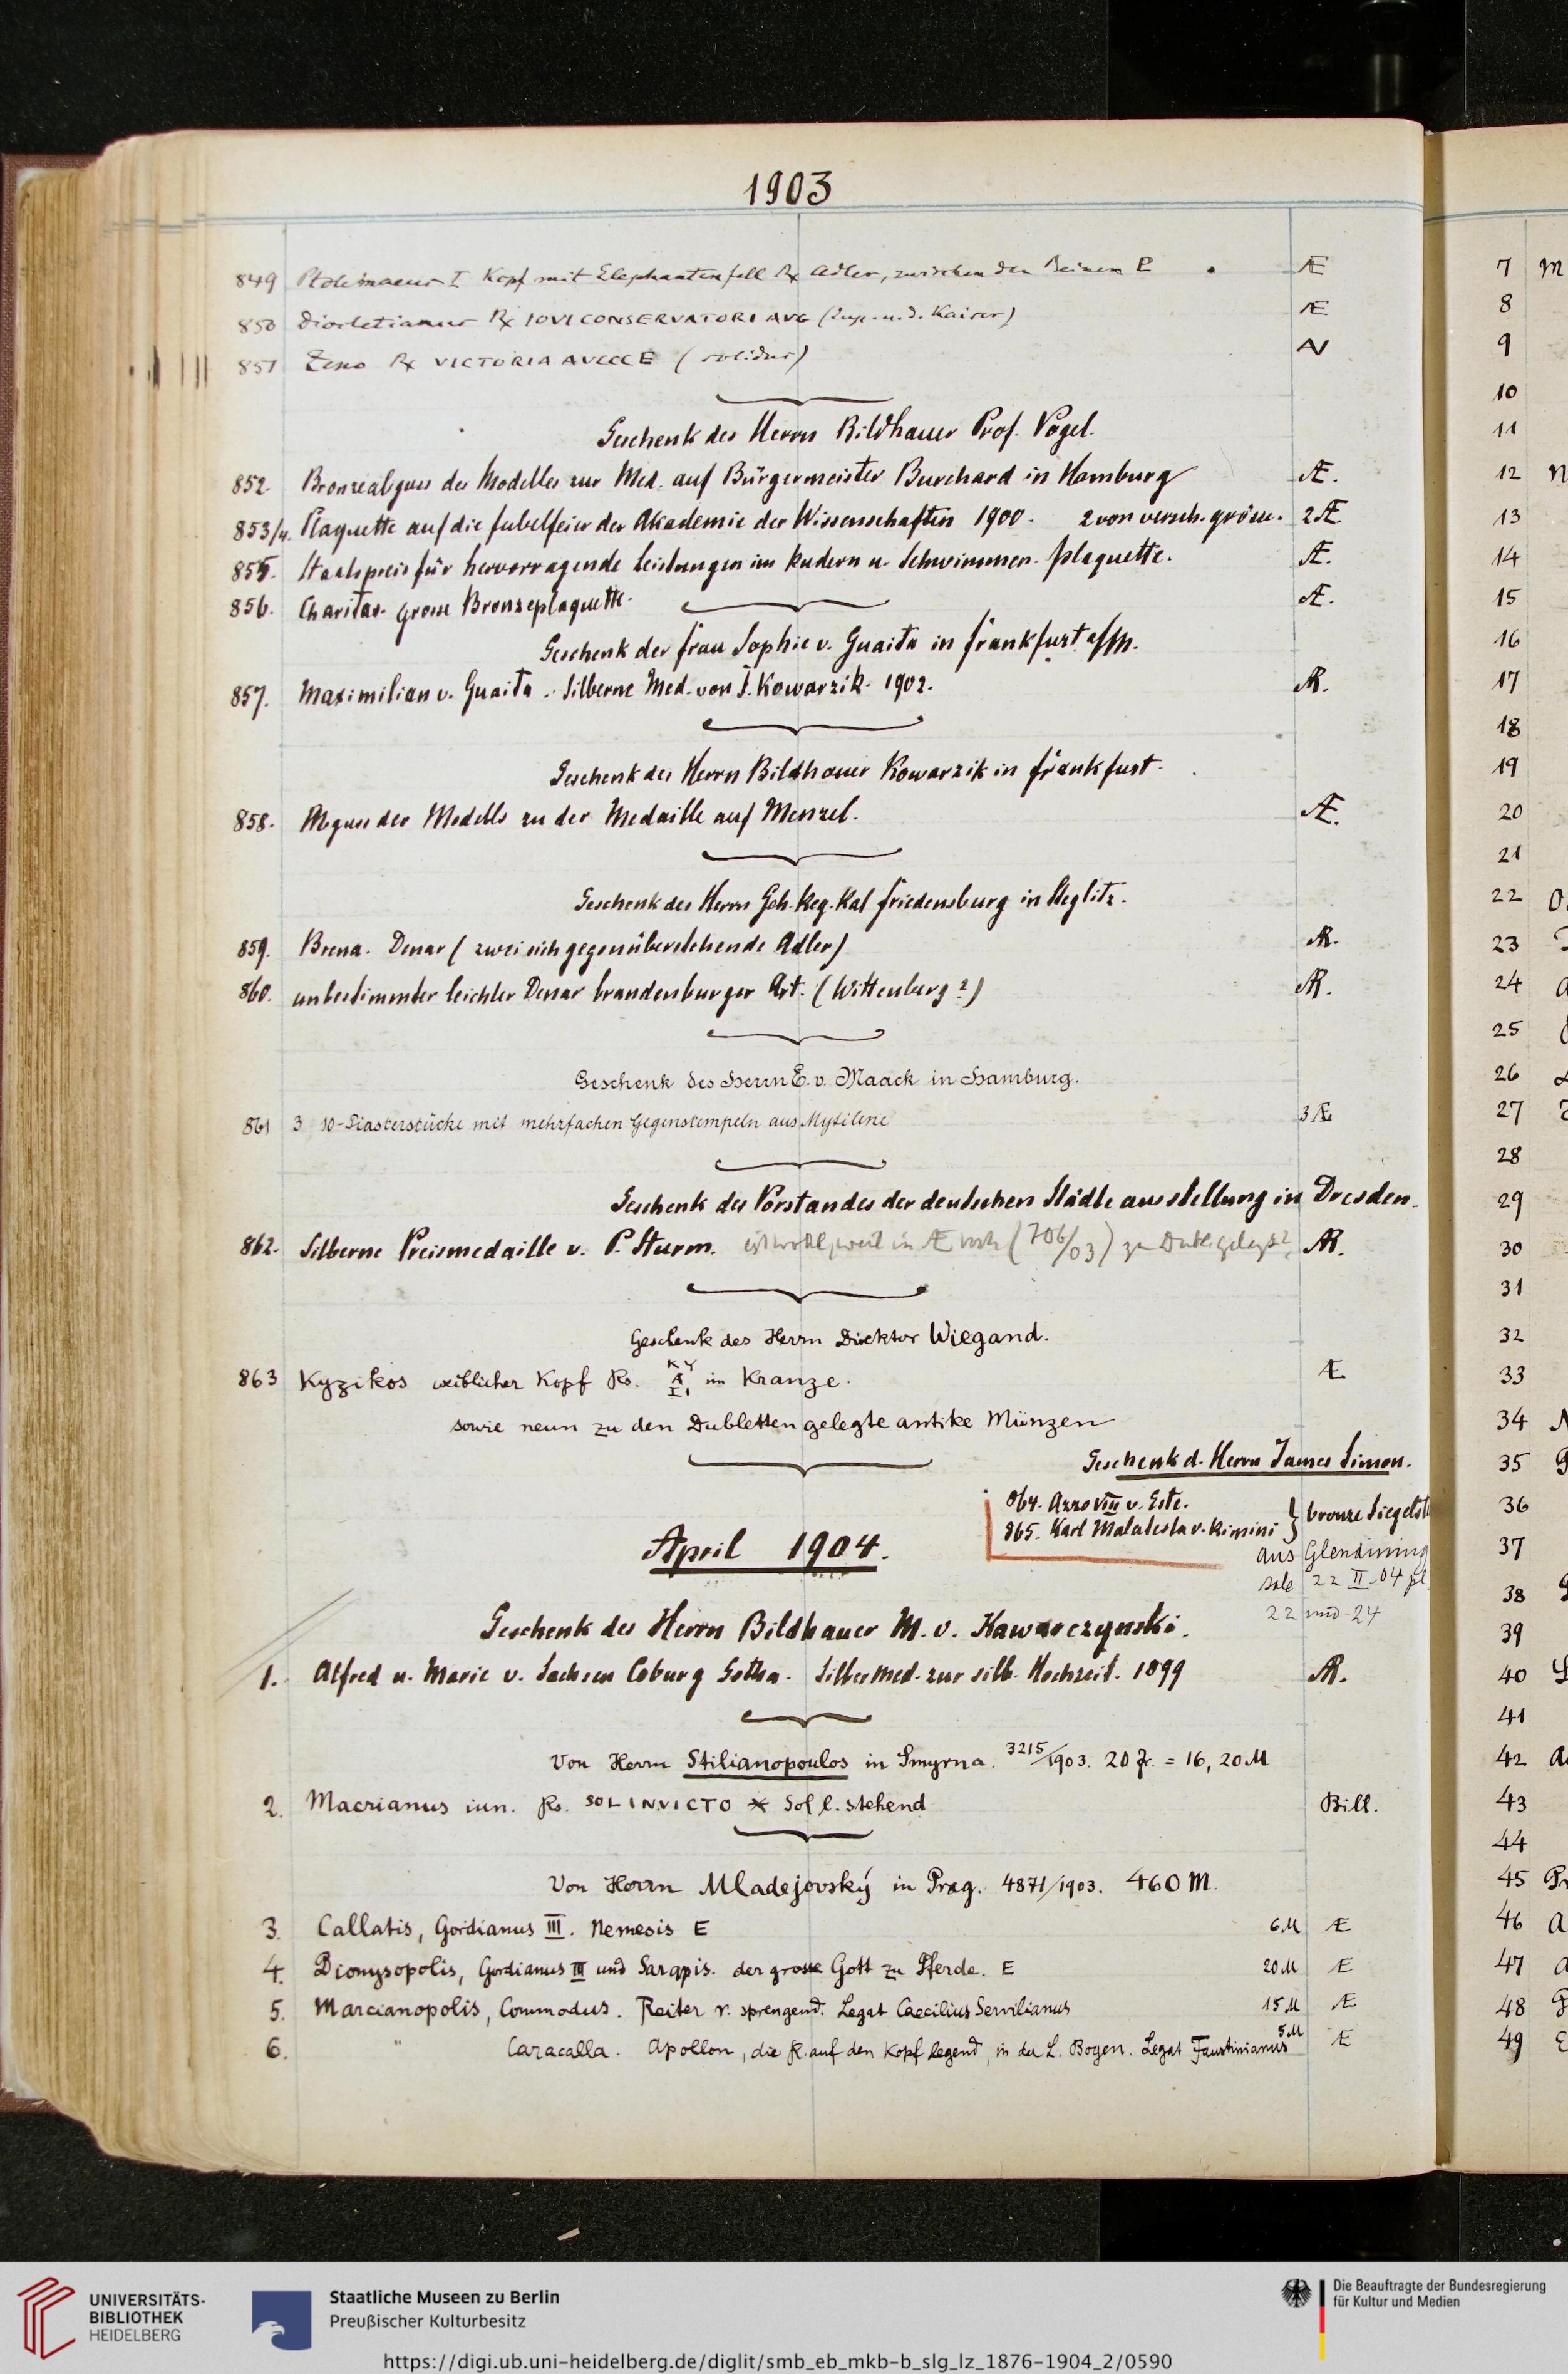 1903
849 Ptolemaeus I Kopf mit Elephantenfell Rx Adler, zwischen den Beinen E Æ
850 Diocletianus Rx IOVI CONSERVATORI AVG (Jup. u. d. Kaiser) Æ
851 Zeno Rx VICTORIA AVCCC E (solidus) AV
Geschenk des Herrn Bildhauer Prof. Vogel.
852. Bronzeabguss des Modelles zur Med. auf Bürgermeister Burchard in Hamburg Æ.
853/4. Plaquette auf die Jubelfeier der Akademie der Wissenschaften 1900. 2 von versch. grösse. 2 Æ.
855. Staatspreis für hervorragende Leistungen im Rudern u. Schwimmen. Plaquette. Æ.
856. Charitas. grosse Bronzeplaquette. Æ.
Geschenk der Frau Sophie v. Guaita in Frankfurt a/M.
857. Maximilian v. Guaita. Silberne Med. von J. Kowarzik. 1902. AR.
Geschenk des Herrn Bildhauer Kowarzik in Frankfurt.
858. Abguss des Modells zu der Medaille auf Menzel. Æ.
Geschenk des Herrn Geh. Reg. Rat Friedensburg in Steglitz.
859. Brena. Denar (zwei sich gegenüberstehende Adler) AR.
860. unbestimmter leichter Denar brandenburger Art. (Wittenberg?) AR.
Geschenk des Herrn E. v. Maack in Hamburg.
861 3 10-Piasterstücke mit mehrfachen Gegenstempeln aus Mytilene 3 Æ
Geschenk des Vorstandes der deutschen Städteausstellung in Dresden.
862. Silberne Preismedaille v. P. Sturm. ist wohl, weil in Æ vorh (706/03) zu Dubl. gelegt? AR.
Geschenk des Herrn Direktor Wiegand.
863 Kyzikos weiblicher Kopf Rs. KY im Kranze. Æ
sowie neun zu den Dubletten gelegte antike Münzen
Geschenk d. Herrn James Simon.
864. Azzo VIII v. Este.
865. Karl Malatesta v. Rimini } bronze Siegelst
aus Glendining
sale 22 II 04 pl
22 und 24
April 1904.
Geschenk des Herrn Bildhauer M. v. Kawarczynski.
1. Alfred u. Marie v. Sachsen Coburg Gotha. Silbermed. zur silb. Hochzeit. 1899 AR.
Von Herrn Stilianopoulos in Smyrna. 3215/1903. 20 Fr. = 16,20 M
2. Macrianus iun. Rs. SOL INVICTO * Sol l. stehend Bill.
Von Herrn Mladejovský in Prag. 4871/1903. 460 M.
3. Callatis, Gordianus III. Nemesis E 6 M Æ
4. Dionysopolis, Gordianus III und Sarapis. der grosse Gott zu Pferde. E 20 M Æ
5. Marcianopolis, Commodus. Reiter r. sprengend. Legat Caecilius Servilianus 15 M Æ
6. " Caracalla. Apollon, die R. auf den Kopf legend, in der L. Bogen. Legat Faustinianus 5 M Æ
7 M
8
9
10
11
12 N
13
14
15
16
17
18
19
20
21
22
23
24
25
26
27
28
29
30
31
32
33
34
35
36
37
38
39
40
41
42
43
44
45
46
47
48
49
UNIVERSITÄTS-
BIBLIOTHEK
HEIDELBERG
Staatliche Museen zu Berlin
Preußischer Kulturbesitz
Die Beauftragte der Bundesregierung
für Kultur und Medien
https://digi.ub.uni-heidelberg.de/diglit/smb_eb_mkb-b_slg_lz_1876-1904_2/0590